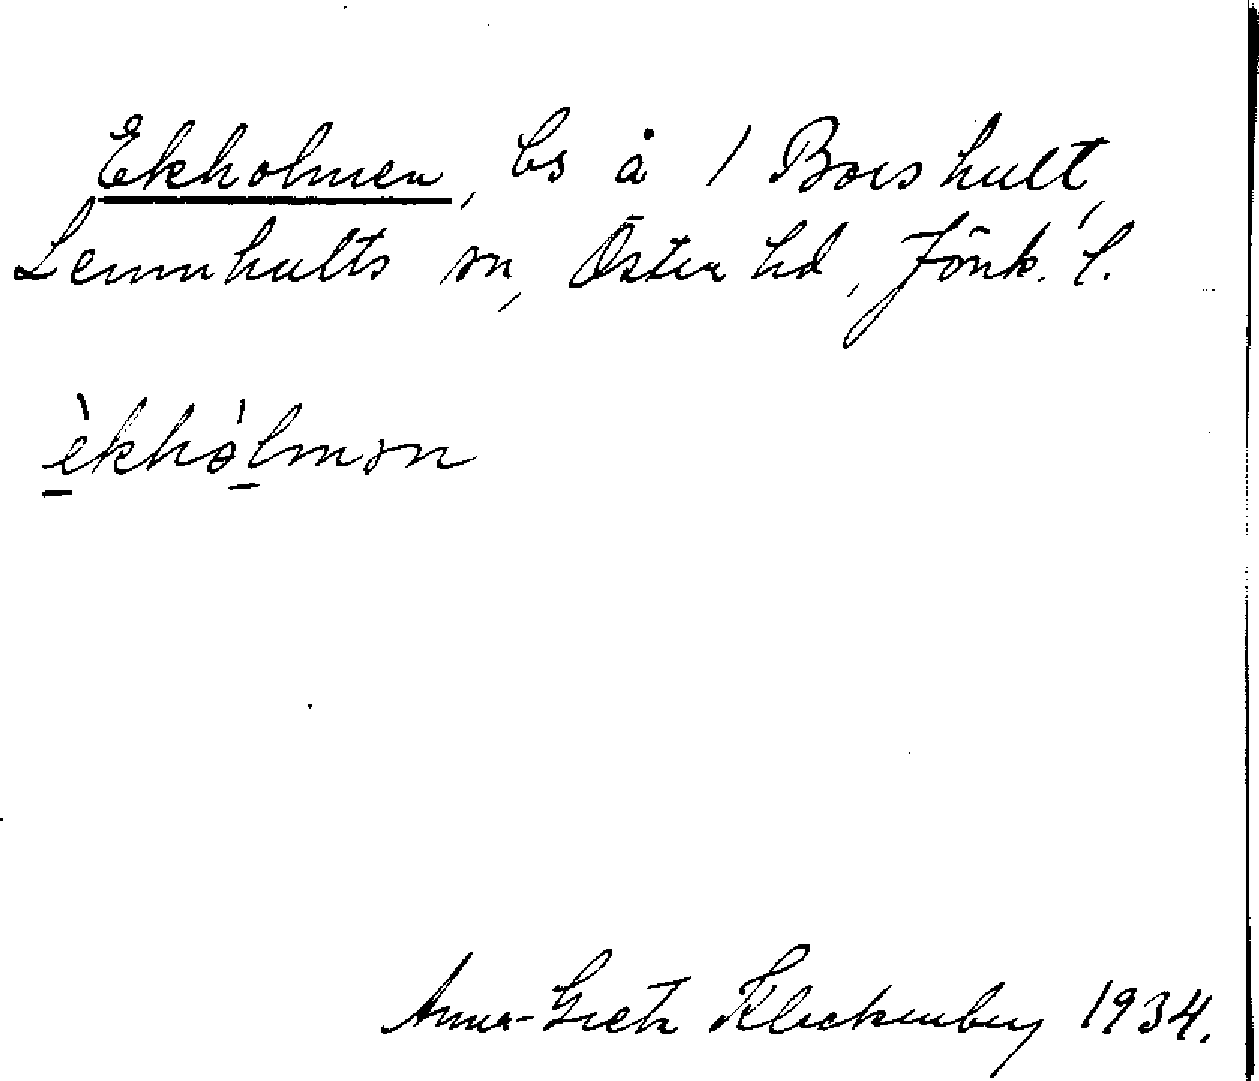 Ekholmen, ls å 1 Boeshult,
Lemnhults sn, Östra hd, Jönk. l.
èkhólmən
Anna-Greta Kleckenberg 1934.